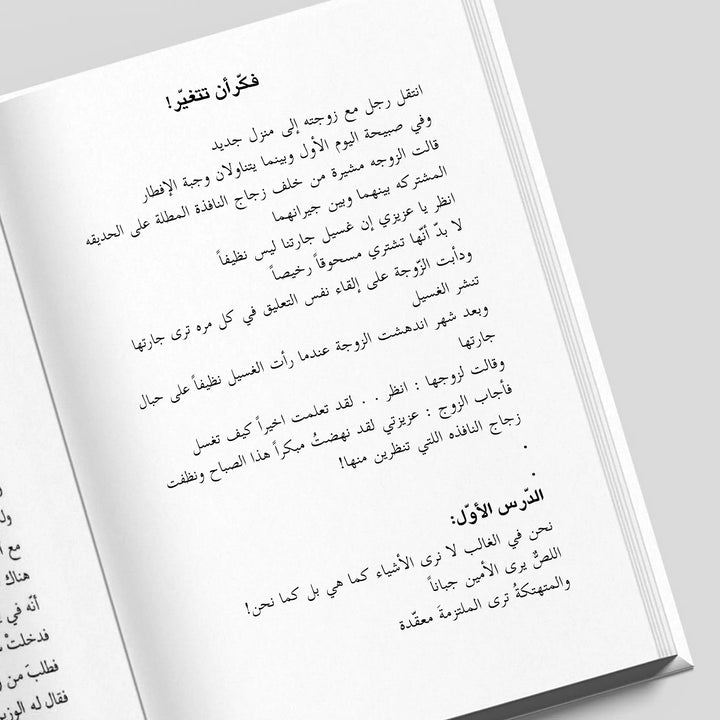 فكّرأن تتغيّر!
انتقل رجل مع زوجته إلى منزل جديد
وفي صبيحة اليوم الأول وبينما يتناولان وجبة الإفطار
قالت الزوجه مشيرة من خلف زجاج النافذة المطلة على الحديقه
المشتركه بينهما وبين جيرانهما
انظر يا عزيزي إن غسيل جارتنا ليس نظيفاً
لا بدّ أنّها تشتري مسحوقاً رخيصاً
ودأبت الزّوجة على إلقاء نفس التعليق في كل مره ترى جارتها
تنشر الغسيل
وبعد شهر اندهشت الزوجة عندما رأت الغسيل نظيفاً على حبال
جارتها
وقالت لزوجها : انظر . . لقد تعلمت اخيراً كيف تغسل
فأجاب الزوج : عزيزتي لقد نهضتُ مبكراً هذا الصباح ونظفت
زجاج النافذه اللتي تنظرين منها!
.
.
الدّرس الأوّل:
نحن في الغالب لا نرى الأشياء كما هي بل كما نحن!
اللصُّ يرى الأمين جباناً
والمتهتكةُ ترى الملتزمةَ معقّدة
مع
هناك
أنّه في
فدخلتْ
فطلبَ من
فقال له الوزير